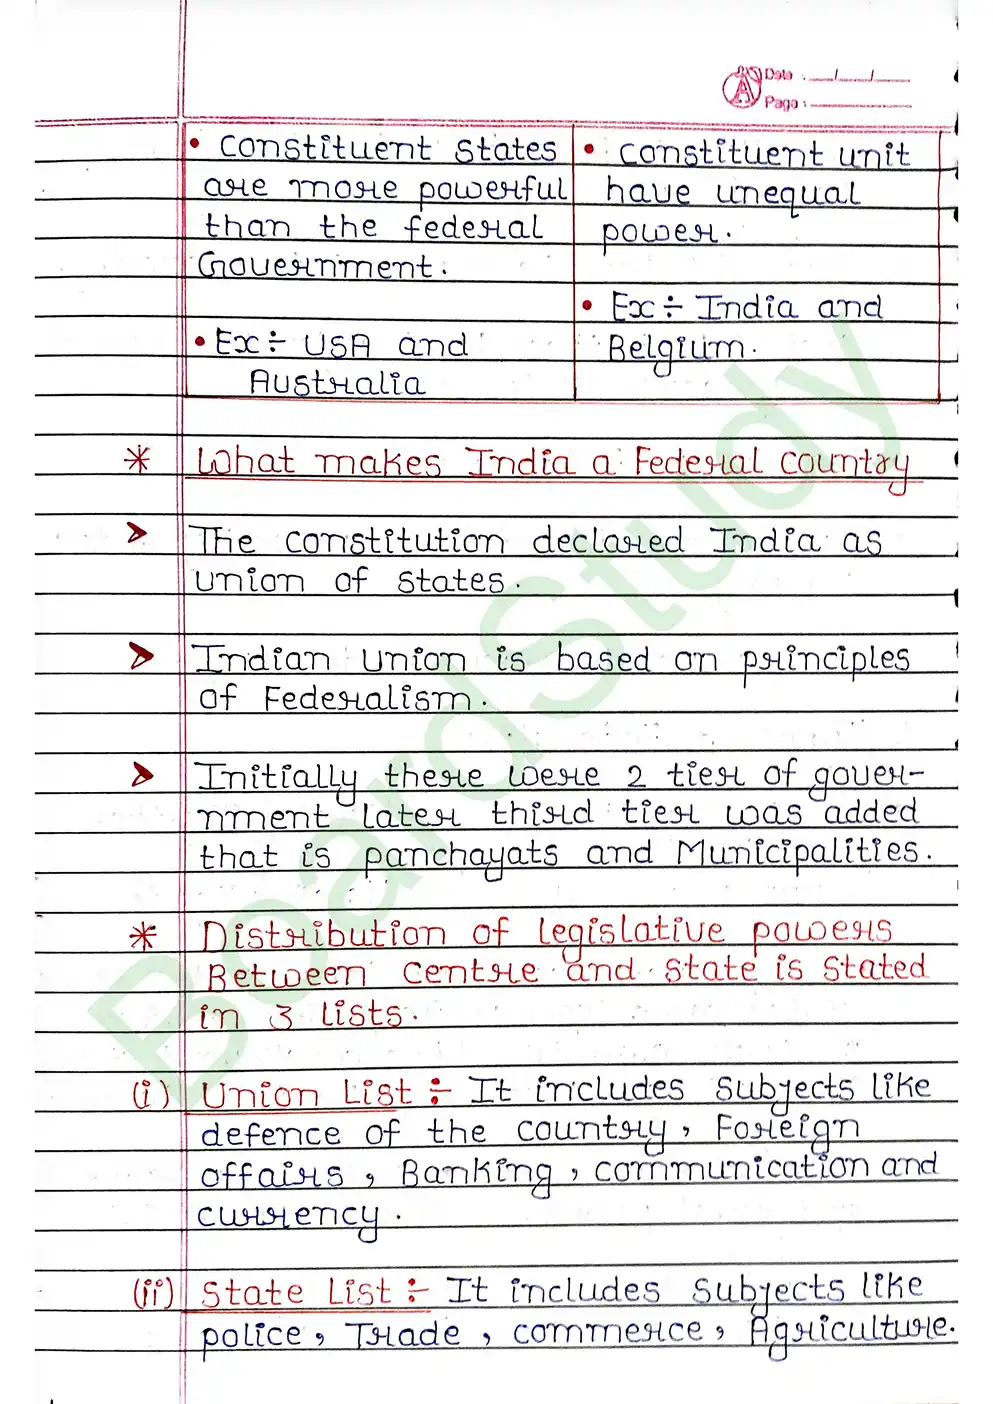 Date : __/__/__
Page : ________
• Constituent states
are more powerful
than the federal
Government.
• Ex ÷ USA and
Australia
• Constituent unit
have unequal
power.
• Ex ÷ India and
Belgium.
* What makes India a Federal country
➤ The constitution declared India as
union of states.
➤ Indian union is based on principles
of Federalism.
➤ Initially there were 2 tier of gover-
nment later third tier was added
that is panchayats and Municipalities.
* Distribution of legislative powers
Between centre and state is stated
in 3 lists.
(i) Union List ÷ It includes subjects like
defence of the country, Foreign
affairs, Banking, communication and
currency.
(ii) State List ÷ It includes subjects like
police, Trade, commerce, Agriculture.
BoardStudy